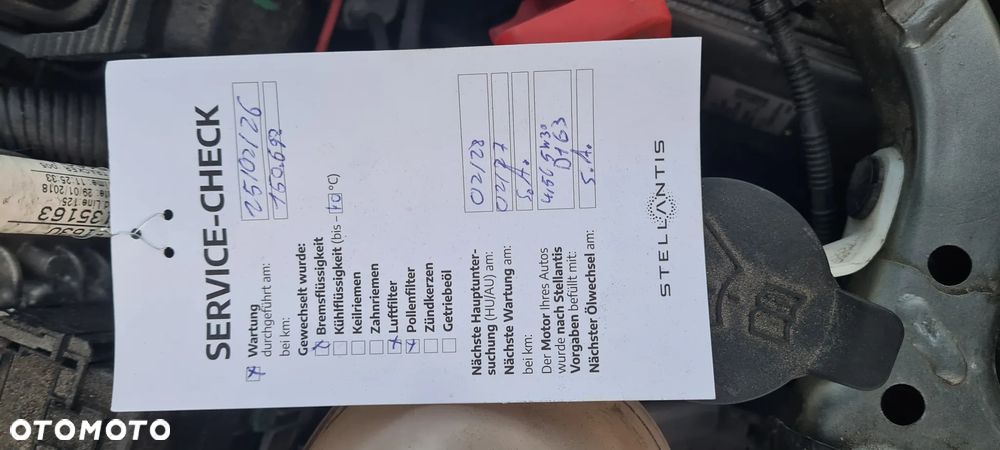 SERVICE-CHECK
Wartung
durchgeführt am: 25/02/26
bei km: 150.692
Gewechselt wurde:
Bremsflüssigkeit
Kühlflüssigkeit (bis - 40 °C)
Keilriemen
Zahnriemen
Luftfilter
Pollenfilter
Zündkerzen
Getriebeöl
Nächste Hauptunter-
suchung (HU/AU) am: 02/28
Nächste Wartung am: 02/27
bei km: S.A.
Der Motor Ihres Autos
wurde nach Stellantis
Vorgaben befüllt mit: 5W30
Nächster Ölwechsel am: S.A.
STELLANTIS
35163
29/01/2018
11:25:33
OTOMOTO